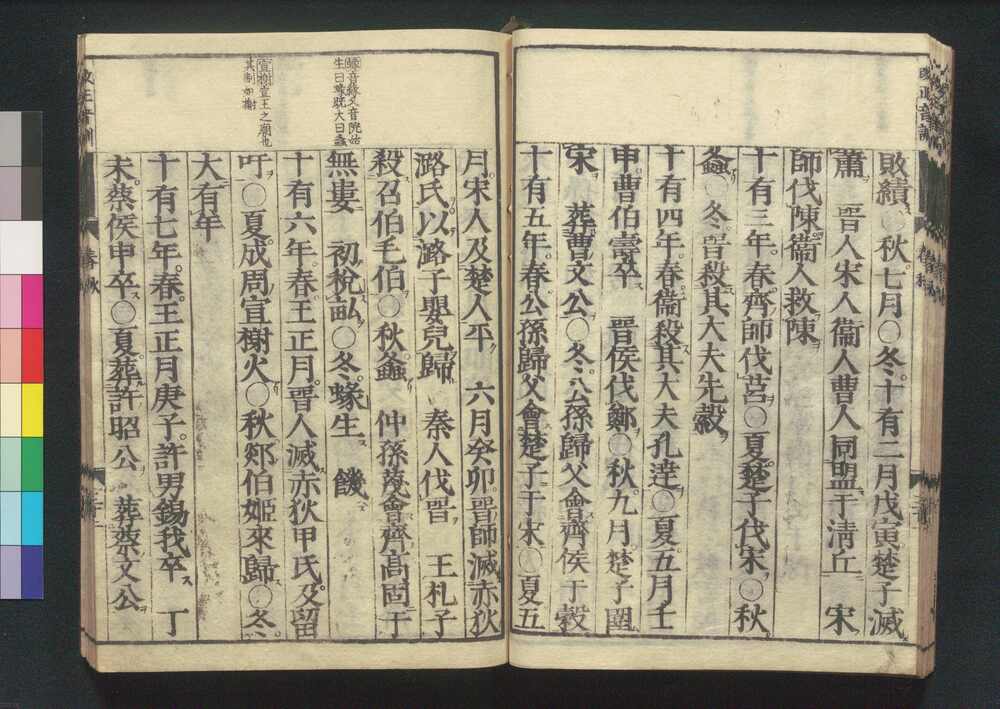 敗績〇秋七月〇冬十有二月戊寅楚子滅
蕭　晉人宋人衞人曹人同盟于清丘　宋
師伐陳衞人救陳
十有三年春齊師伐莒〇夏楚子伐宋〇秋
螽〇冬晉殺其大夫先縠
十有四年春衞殺其大夫孔達〇夏五月壬
申曹伯壽卒　晉侯伐鄭〇秋九月楚子圍
宋　葬曹文公〇冬公孫歸父會齊侯于穀
十有五年春公孫歸父會楚子于宋〇夏五
蝝音緣又音院始
生曰蝝既大曰螽
宣榭宣王之廟也
其制如榭
月宋人及楚人平　六月癸卯晉師滅赤狄
潞氏以潞子嬰兒歸　秦人伐晉　王札子
殺召伯毛伯〇秋螽　仲孫蔑會齊高固于
無婁　初稅畝〇冬蝝生　饑
十有六年春王正月晉人滅赤狄甲氏及留
吁〇夏成周宣榭火〇秋郯伯姬來歸〇冬
大有年
十有七年春王正月庚子許男錫我卒　丁
未蔡侯申卒〇夏葬許昭公　葬蔡文公
春秋